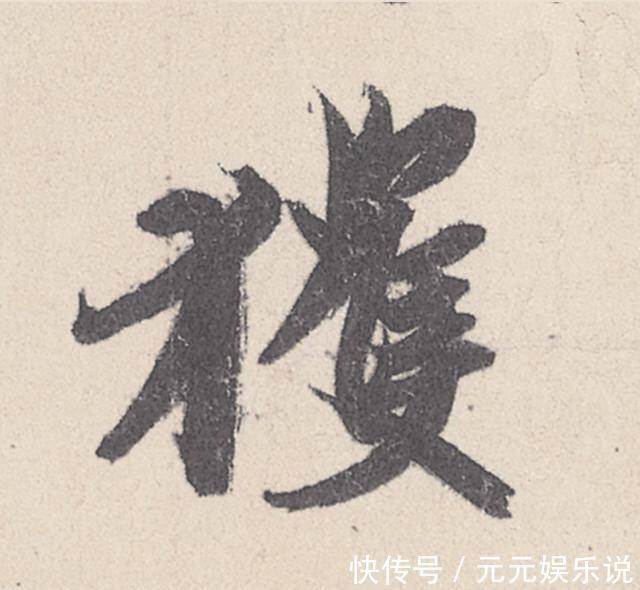 穫
快传号 / 元元娱乐说